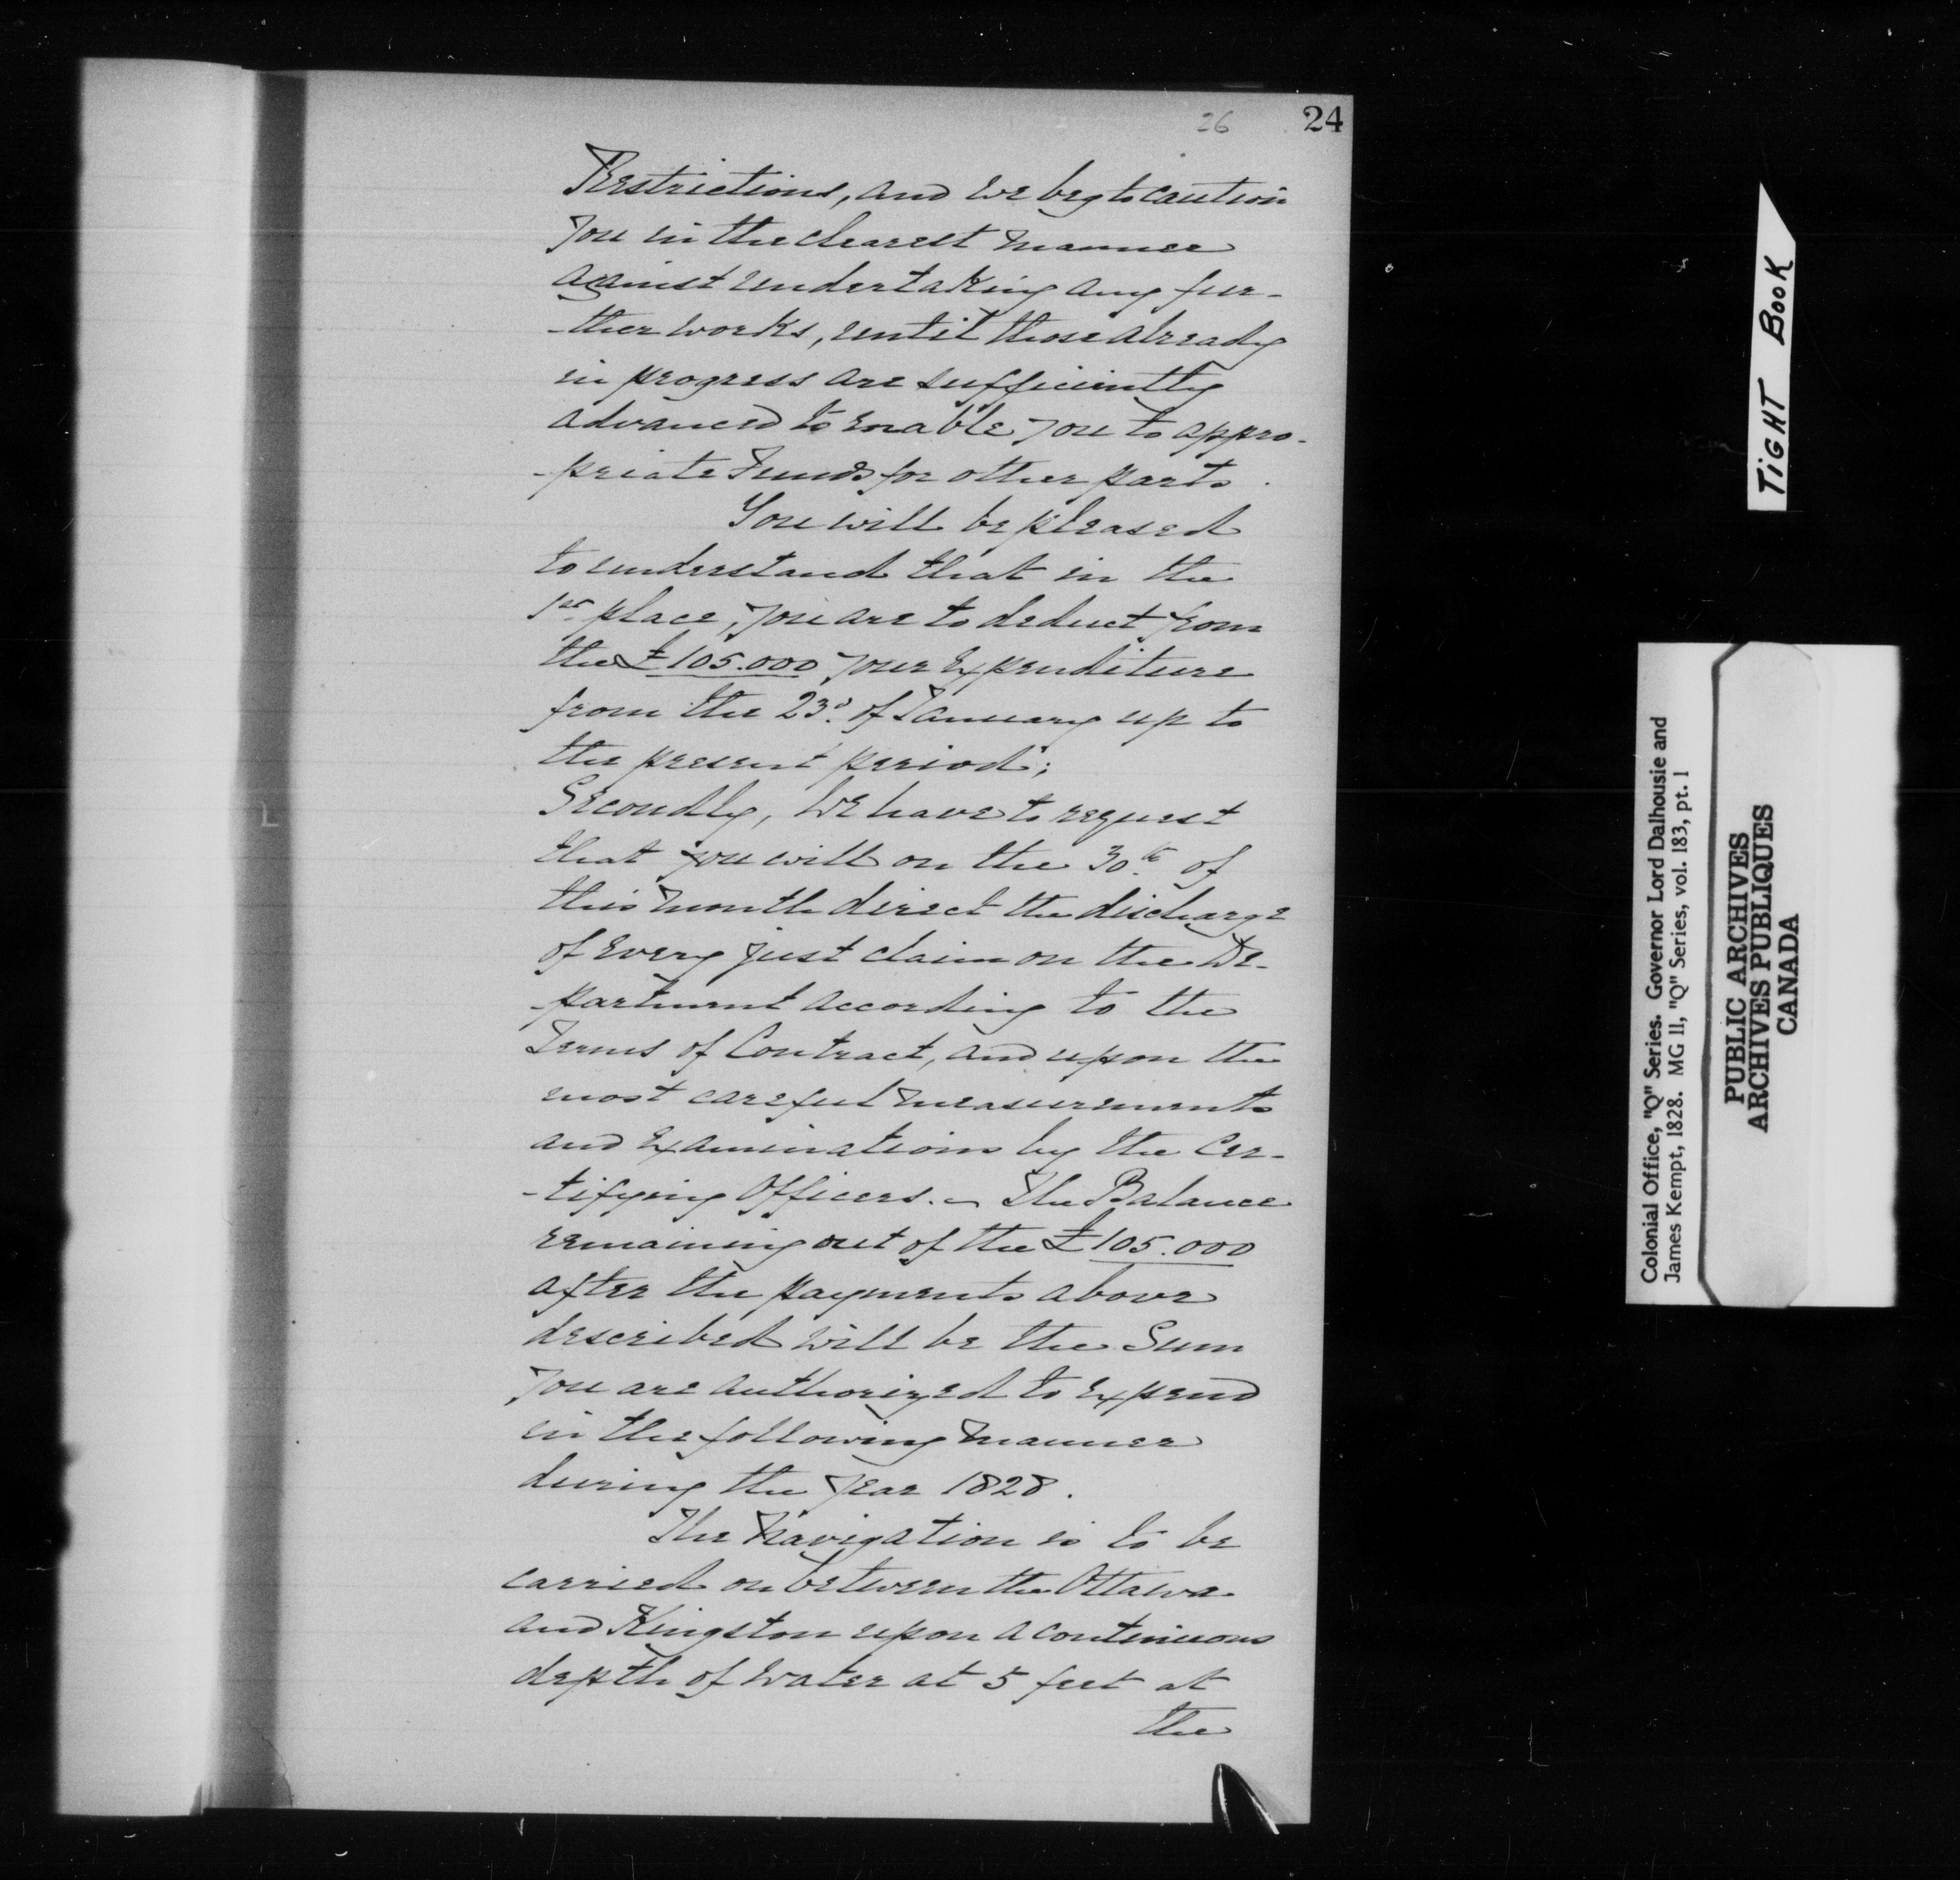 26 24
Restrictions, and we beg to caution
you in the clearest manner
against undertaking any fur-
-ther works, until those already
in progress are sufficiently
advanced to enable you to appro-
-priate Funds for other parts.
You will be pleased
to understand that in the
1st place, you are to deduct from
the £105.000 your Expenditure
from the 23d. of January up to
the present period;
Secondly, We have to request
that you will on the 30th. of
this month direct the discharge
of every just claim on the De-
-partment according to the
Terms of Contract, and upon the
most careful measurements
and Examinations by the Cer-
-tifying Officers. – The Balance
remaining out of the £105.000
after the payments above
described will be the Sum
you are authorized to Expend
in the following manner
during the year 1828.
The Navigation is to be
carried on between the Ottawa
and Kingston upon a continuous
depth of water at 5 feet at
the
TIGHT BOOK
Colonial Office, "Q" Series. Governor Lord Dalhousie and
James Kempt, 1828. MG 11, "Q" Series, vol. 183, pt. 1
PUBLIC ARCHIVES
ARCHIVES PUBLIQUES
CANADA